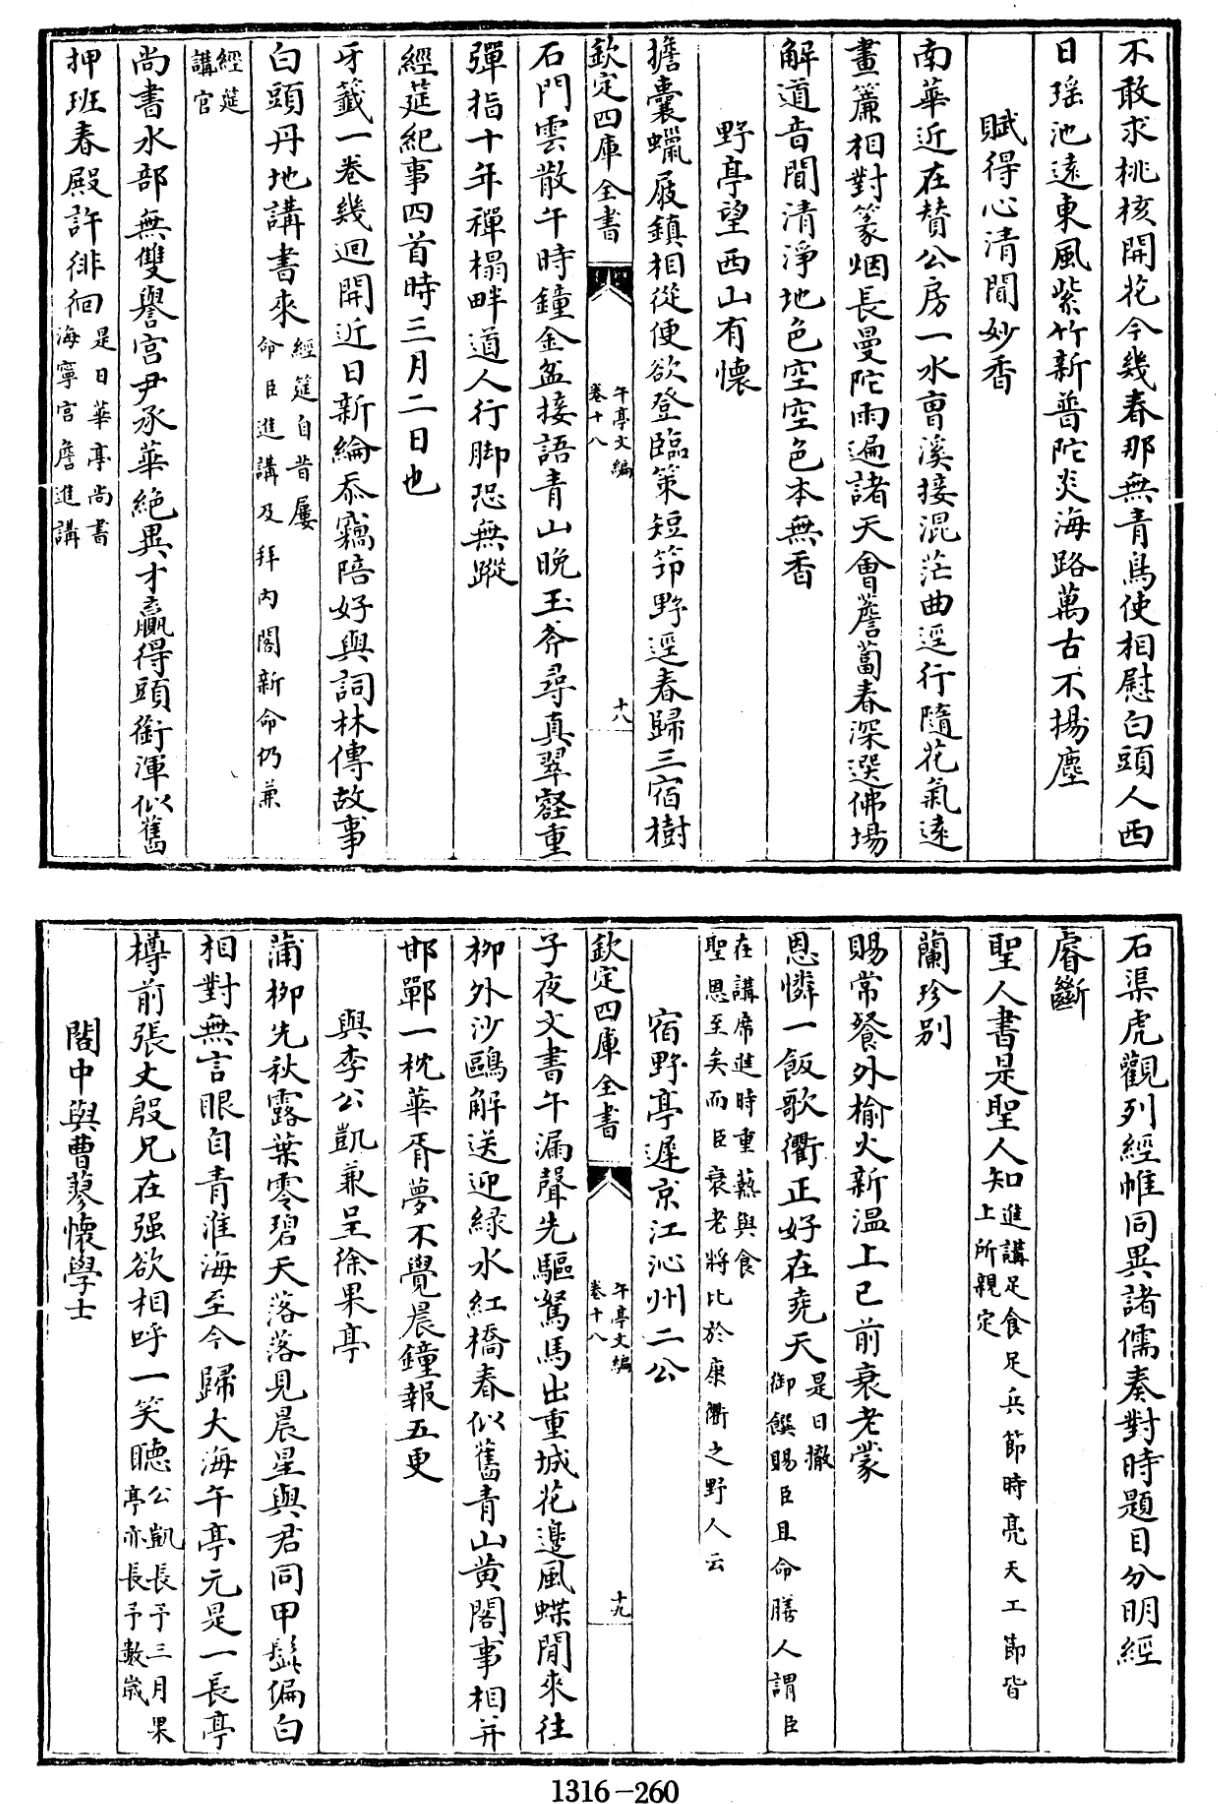 不敢求桃核開花今幾春那無青鳥使相慰白頭人西
日瑶池遠東風紫竹新普陀炎海路萬古不揚塵
賦得心清聞妙香
南華近在賛公房一水曺溪接混茫曲逕行隨花氣遠
畫簾相對篆烟長曼陀雨遍諸天會薝蔔春深選佛場
解道音聞清淨地色空空色本無香
野亭望西山有懷
擔囊蠟屐鎮相從便欲登臨策短笻野逕春歸三宿樹
欽定四庫全書
午亭文編
卷十八
十八
石門雲散午時鐘金盆接語青山晚玉斧尋真翠壑重
彈指十年禪榻畔道人行脚恐無蹤
經筵紀事四首時三月二日也
牙籤一卷幾迴開近日新綸忝竊陪好與詞林傳故事
白頭丹地講書來經筵自昔屢命臣進講及拜内閣新命仍兼
經筵講官
尚書水部無雙譽宫尹承華絶異才贏得頭銜渾似舊
押班春殿許徘徊是日華亭尚書海寧宫詹進講
石渠虎觀列經帷同異諸儒奏對時題目分明經
睿斷
聖人書是聖人知進講足食足兵節時亮天工節皆上所親定
蘭珍別
賜常餐外榆火新温上巳前衰老蒙
恩憐一飯歌衢正好在堯天是日撤御饌賜臣且命膳人謂臣
在講席進時重熱與食聖恩至矣而臣衰老將比於康衢之野人云
宿野亭遲京江沁州二公
欽定四庫全書
午亭文編
卷十八
十九
子夜文書午漏聲先驅駑馬出重城花邊風蝶閒來往
柳外沙鷗解送迎緑水紅橋春似舊青山黄閣事相并
邯鄲一枕華胥夢不覺晨鐘報五更
與李公凱兼呈徐果亭
蒲柳先秋露葉零碧天落落見晨星與君同甲髩偏白
相對無言眼自青淮海至今歸大海午亭元是一長亭
樽前張丈殷兄在强欲相呼一笑聽公凱長予三月果亭亦長予數歲
閣中與曹蓼懷學士
1316-260